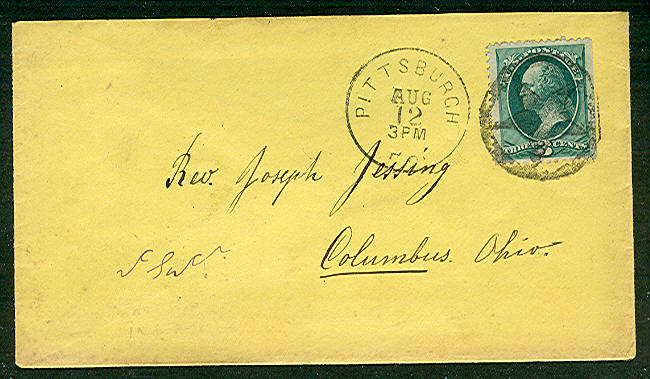 U.S. POSTAGE
THREE 3 CENTS
PITTSBURGH
AUG
12
3PM
Rev. Joseph Jessing
Columbus. Ohio.